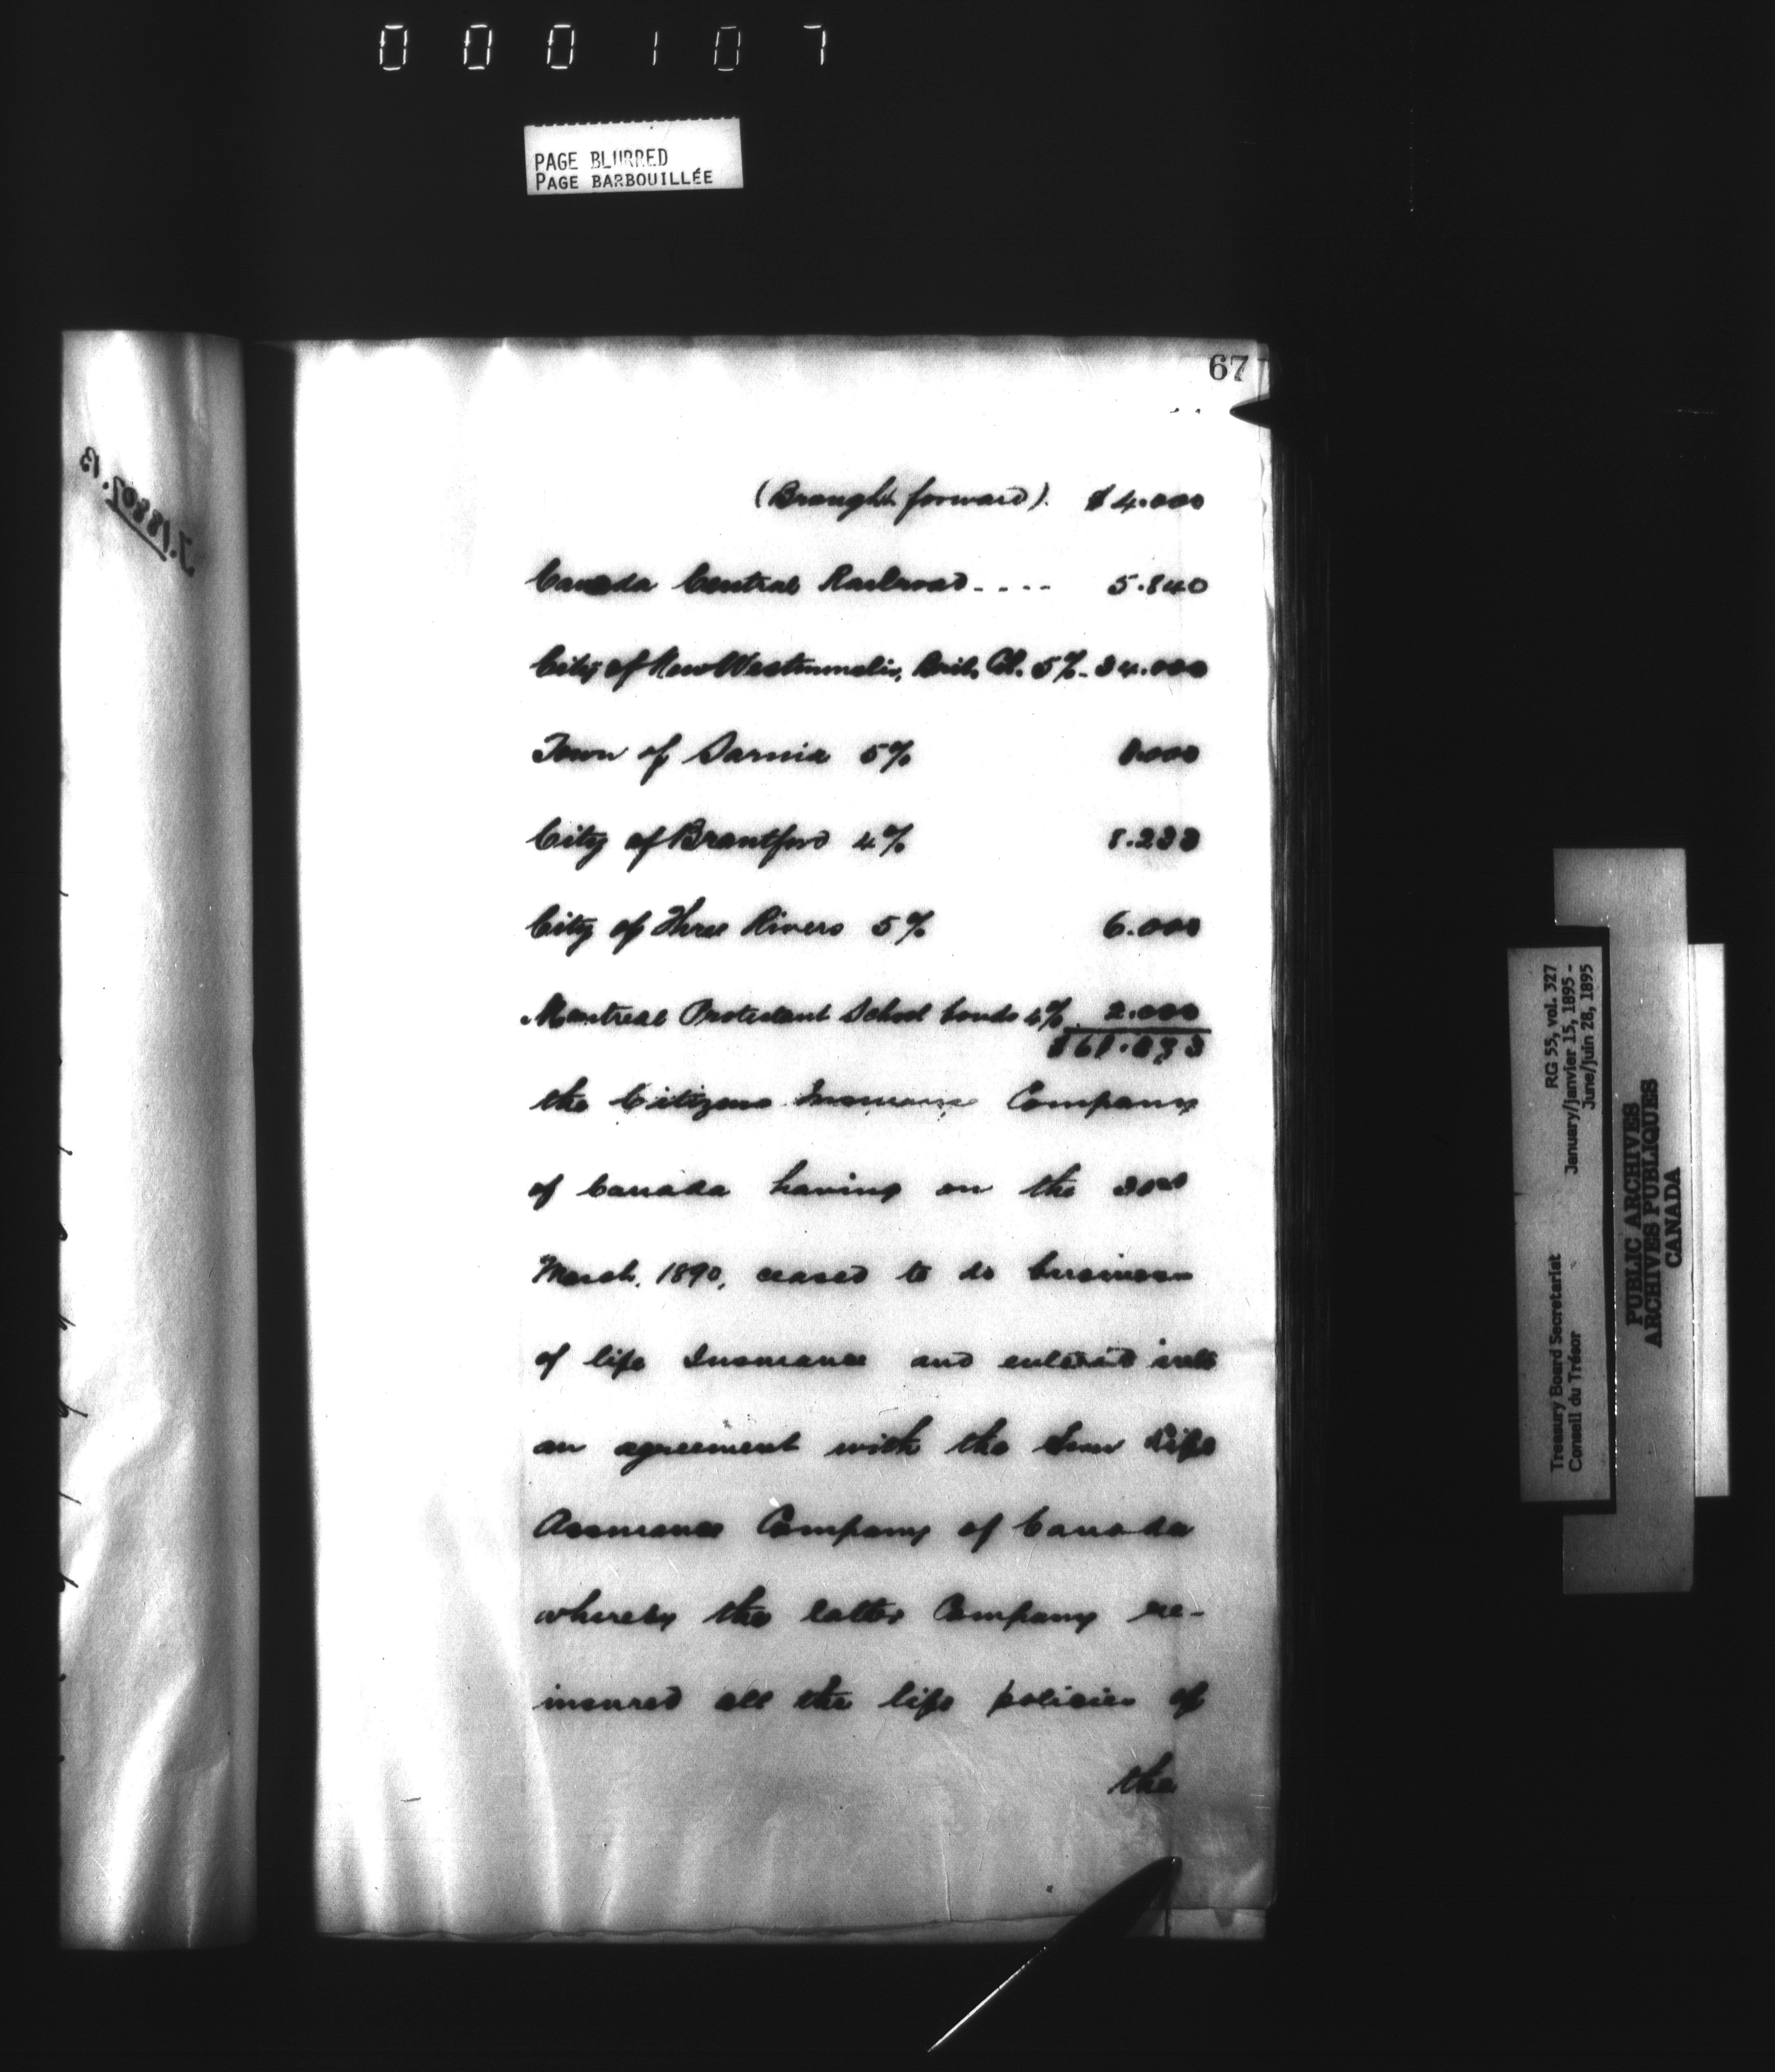 000107
PAGE BLURRED
PAGE BARBOUILLÉE
67
(Brought forward). $4.000
Canada Central Railroad---- 5.840
City of New Westminster, Brit. Col. 5%- 34.000
Town of Sarnia 5% 8.000
City of Brantford 4% 8.233
City of Three Rivers 5% 6.000
Montreal Protestant School bonds 4% 2.000
$68.073
the Citizens Insurance Company
of Canada having on the
March, 1890, ceased to do business
of life Insurance and entered into
an agreement with the Sun Life
Assurance Company of Canada
whereby the latter Company re-
insured all the life policies of
the
Treasury Board Secretariat RG 55, vol. 327
Conseil du Trésor January/janvier 15, 1895 -
June/juin 28, 1895
PUBLIC ARCHIVES
ARCHIVES PUBLIQUES
CANADA